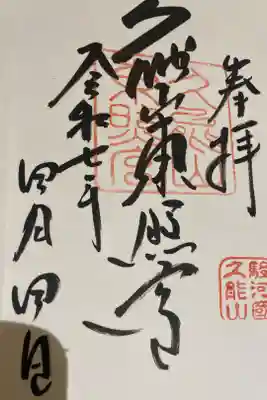 奉拝
久能山東照宮
令和七年
四月四日
駿河國
久能山